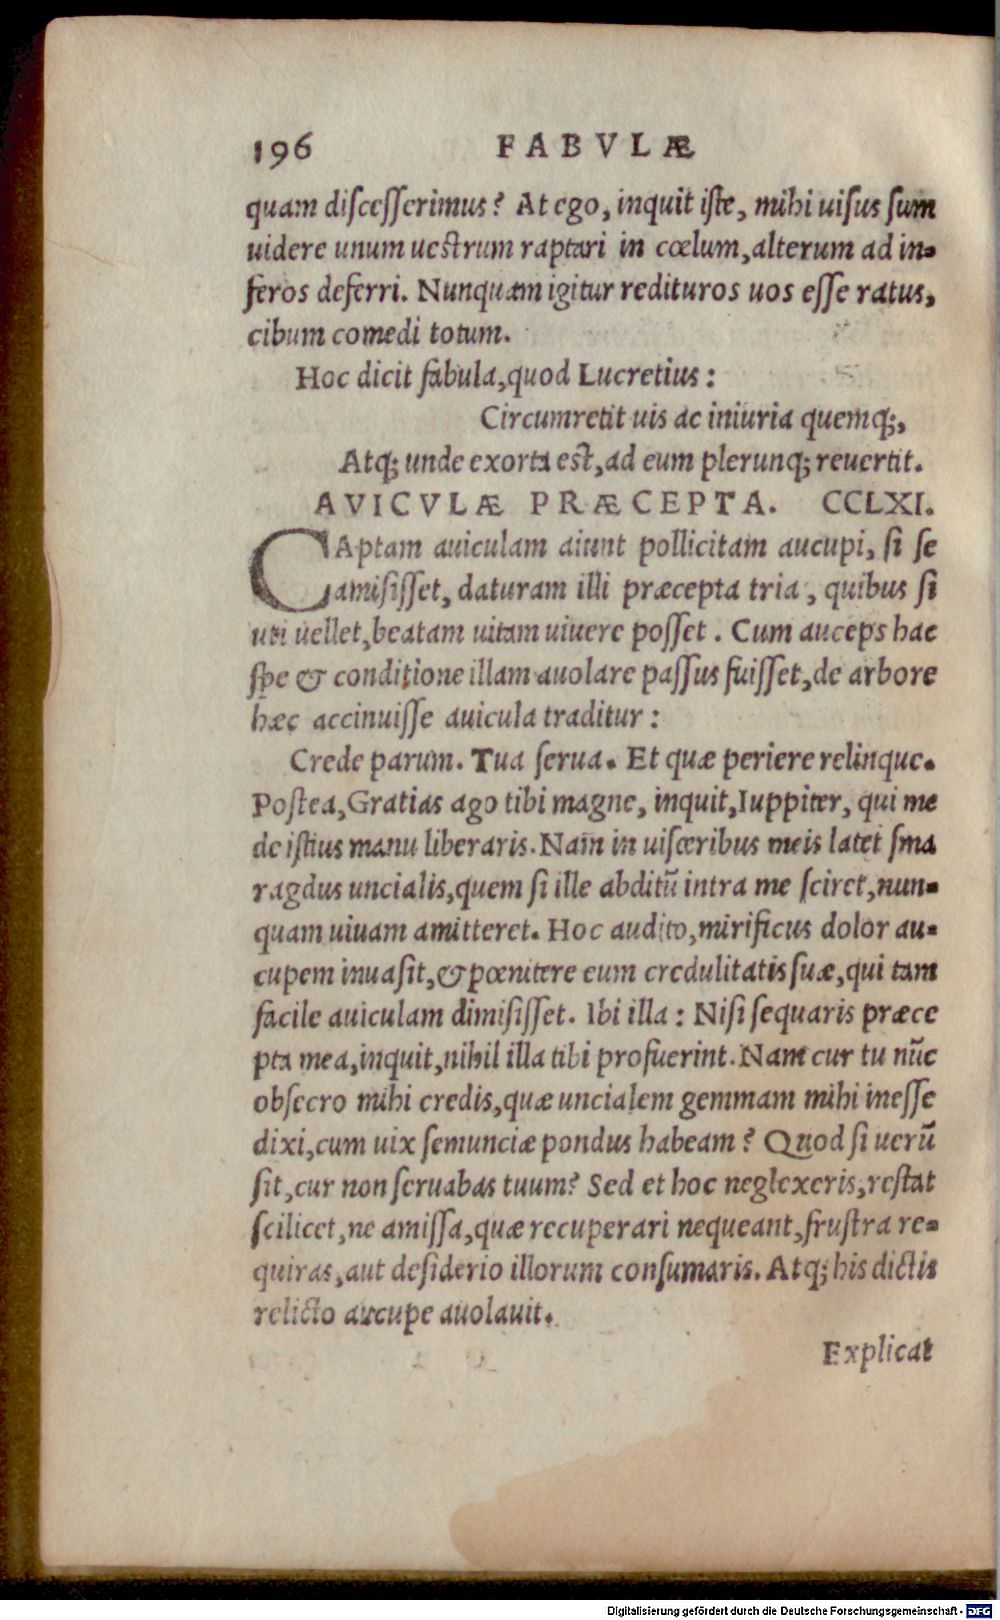 196 FABVLÆ
quam discesserimus? At ego, inquit iste, mihi uisus sum
uidere unum uestrum raptari in cœlum, alterum ad in-
feros deferri. Nunquam igitur redituros uos esse ratus,
cibum comedi totum.
Hoc dicit fabula, quod Lucretius:
Circumretit uis ac iniuria quemq;,
Atq; unde exorta est, ad eum plerunq; reuertit.
AVICVLÆ PRÆCEPTA. CCLXI.
CAptam auiculam aiunt pollicitam aucupi, si se
amisisset, daturam illi præcepta tria, quibus si
uti uellet, beatam uitam uiuere posset. Cum auceps hac
spe & conditione illam auolare passus fuisset, de arbore
hæc accinuisse auicula traditur:
Crede parum. Tua serua. Et quæ periere relinque.
Postea, Gratias ago tibi magne, inquit, Iuppiter, qui me
de istius manu liberaris. Nam in uisceribus meis latet sma
ragdus uncialis, quem si ille abditū intra me sciret, nun-
quam uiuam amitteret. Hoc audito, mirificus dolor au-
cupem inuasit, & pœnitere eum credulitatis suæ, qui tam
facile auiculam dimisisset. Ibi illa: Nisi sequaris præce
pta mea, inquit, nihil illa tibi profuerint. Nam cur tu nūc
obsecro mihi credis, quæ uncialem gemmam mihi inesse
dixi, cum uix semunciæ pondus habeam? Quod si uerū
sit, cur non seruabas tuum? Sed et hoc neglexeris, restat
scilicet, ne amissa, quæ recuperari nequeant, frustra re-
quiras, aut desiderio illorum consumaris. Atq; his dictis
relicto aucupe auolauit.
Explicat
Digitalisierung gefördert durch die Deutsche Forschungsgemeinschaft - DFG